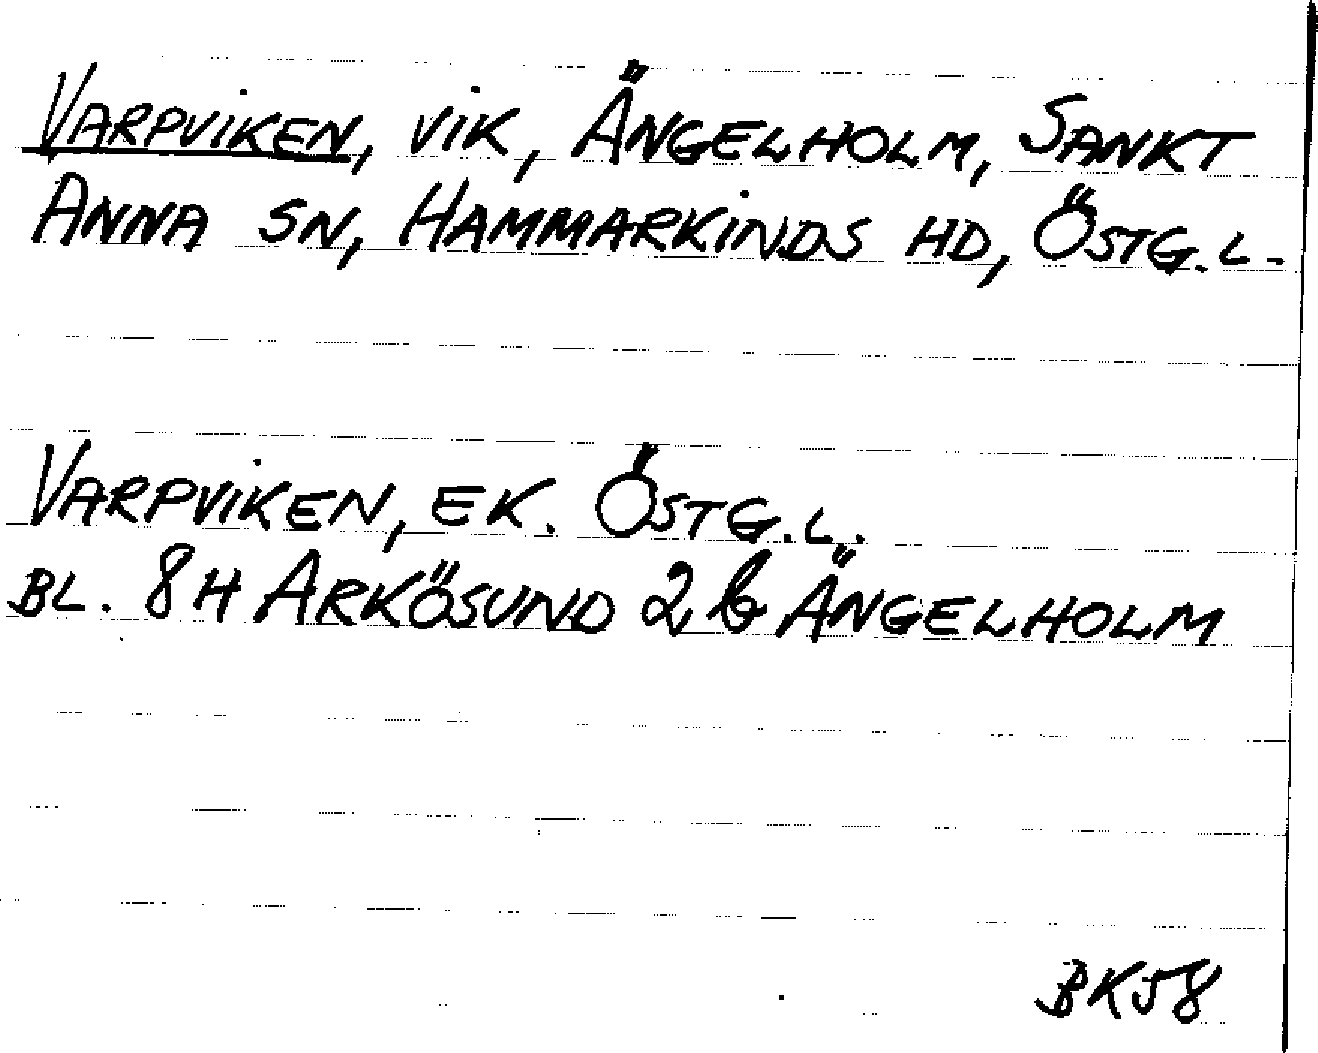 VARPVIKEN, VIK, ÄNGELHOLM, SANKT
ANNA SN, HAMMARKINDS HD, ÖSTG. L.
VARPVIKEN, EK. ÖSTG. L.
BL. 8H ARKÖSUND 2 b ÄNGELHOLM
BK58